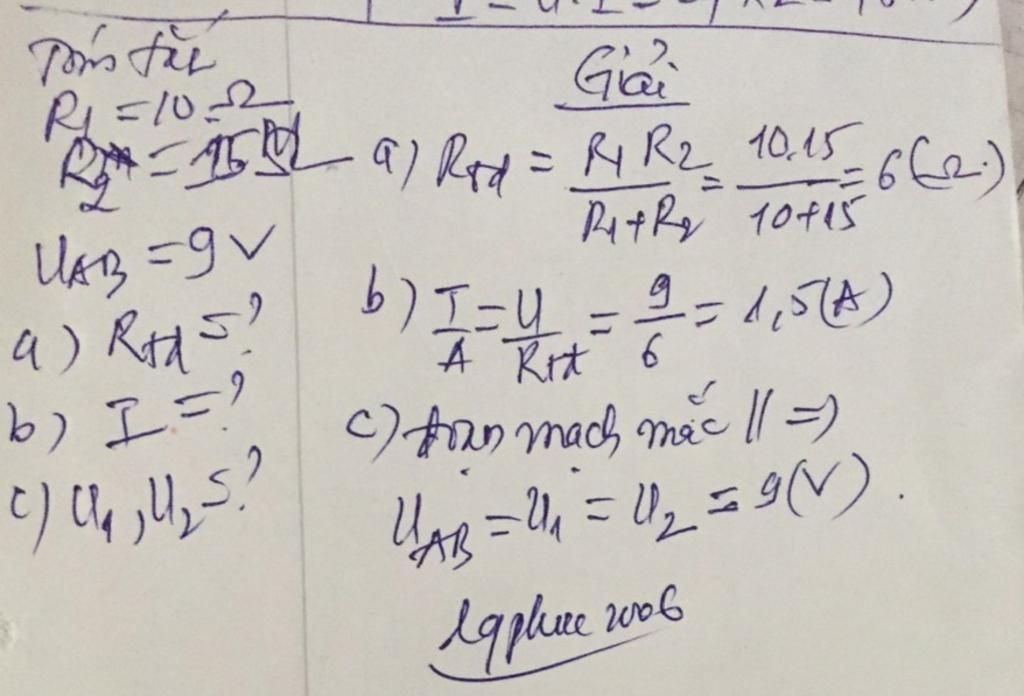 Tóm tắt
R1 = 10 Ω
R2 = 15 Ω
UAB = 9 V
a) Rtđ = ?
b) I = ?
c) U1, U2 = ?
Giải
a) Rtđ = R1 R2 / R1 + R2 = 10.15 / 10+15 = 6 (Ω)
b) I / A = U / Rtđ = 9 / 6 = 1,5 (A)
c) đoạn mạch mắc // =>
UAB = U1 = U2 = 9 (V).
lqphuc 2006